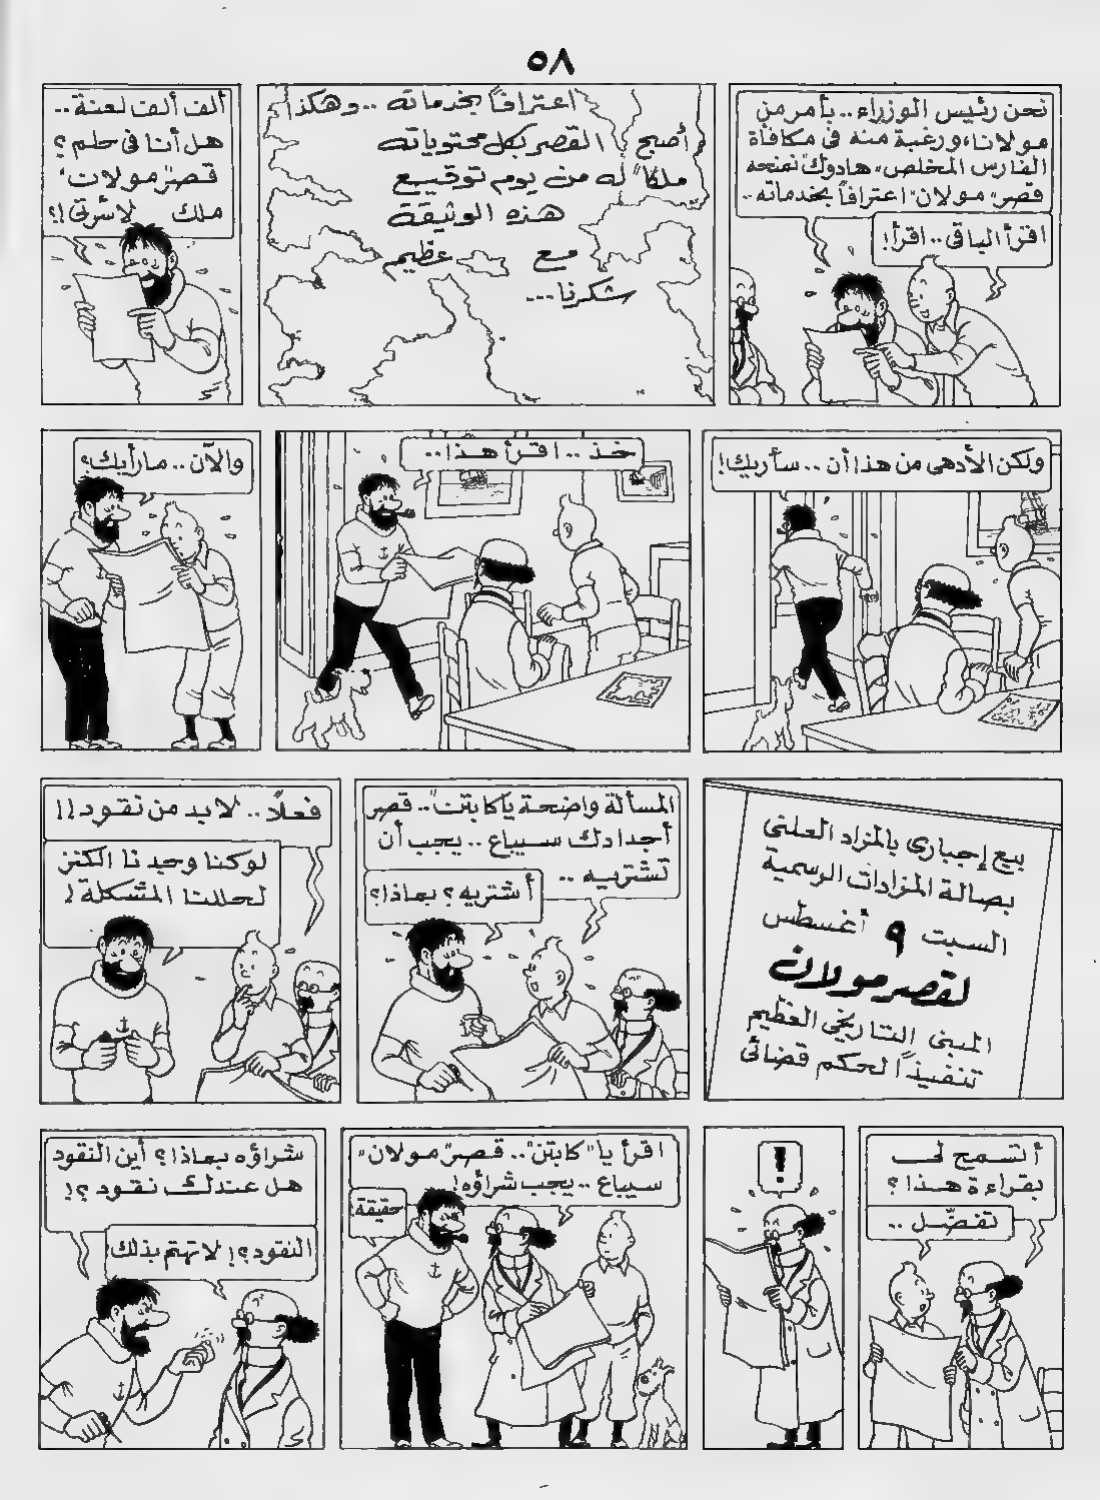 ٥٨
نحن رئيس الوزراء .. بأمر من
مولانا، ورغبة منه فى مكافأة
الفارس المخلص "هادوك" نمنحه
قصر "مولان" اعترافاً بخدماته ..
اقرأ الباقى .. اقرأ!
اعترافاً بخدماته .. وهكذا
أصبح القصر بكل محتوياته
ملكاً له من يوم توقيع
هذه الوثيقة
مع عظيم
شكرنا ...
ألف ألف لعنة ..
هل أنا فى حلم ؟
قصر "مولان"
ملك لأسرتى !؟
ولكن الأدهى من هذا أن .. سأريك!
خذ .. اقرأ هذا ..
والآن .. مارأيك؟
بيع إجبارى بالمزاد العلنى
بصالة المزادات الرسمية
السبت ٩ أغسطس
لقصر مولان
المبنى التاريخى العظيم
تنفيذاً لحكم قضائى
المسألة واضحة يا"كابتن" .. قصر
أجدادك سيباع .. يجب أن
تشتريه ..
أشتريه ؟ بماذا؟
فعلاً .. لابد من نقود !!
لوكنا وجدنا الكنز
لحللنا المشكلة !
أتسمح لى
بقراءة هذا ؟
تفضّل ..
!
اقرأ يا "كابتن" .. قصر "مولان"
سيباع .. يجب شراؤه!
حقيقة!
شراؤه بماذا؟ أين النقود
هل عندك نقود ؟!
النقود؟! لا تهتم بذلك!